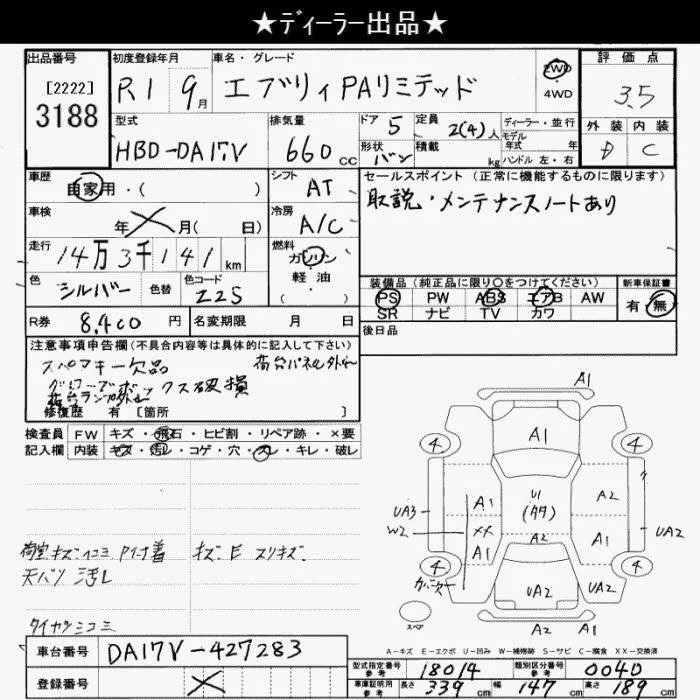 ★ディーラー出品★
出品番号 初度登録年月 車名・グレード 評価点
[2222] 3188
R1 9月 エブリィPAリミテッド 2WD 4WD 3.5
型式 排気量 ドア 5 定員 2(4)人 ディーラー・並行 外装 内装
HBD-DA17V 660cc 形状 バン 積載 kg モデル年式 年 ハンドル 左・右 D C
車歴 自家用・( ) シフト AT セールスポイント(正常に機能するものに限ります)
車検 年 月( 日) 冷房 A/C 取説・メンテナンスノートあり
走行 14万3千141km 燃料 ガソリン 軽油 ( )
色 シルバー 色替 色コード Z2S 装備品(純正品に限り○をつけてください) 新車保証書
PS PW ABS エアB AW 有・無
SR ナビ TV カワ
R券 8,400円 名変期限 月 日 後日品
注意事項申告欄(不具合内容等は具体的に記入して下さい)
スペアキー欠品
グローブボックス破損
修復歴 有 [箇所 ]
検査員 FW キズ・飛石・ヒビ割・リペア跡・×要
記入欄 内装 キズ・汚レ・コゲ・穴・スレ・キレ・破レ
荷室キズイコミ P付着 キズ.E スリキズ
天バリ 汚レ
タイヤツミコミ
車台番号 DA17V-427283
登録番号
A1
4 A1 4
UA3 A1 U1 A2
W2 XX A2 UA2
A1 A2
4 4
UA2 UA2
A2 A1
スペア
A-キズ E-エクボ U-凹み W-補修跡 S-サビ C-腐食 XX-交換済
型式指定番号 参考 18014 類別区分番号 参考 0040
車庫証明用 参考 長さ 339cm 幅 147cm 高さ 189cm